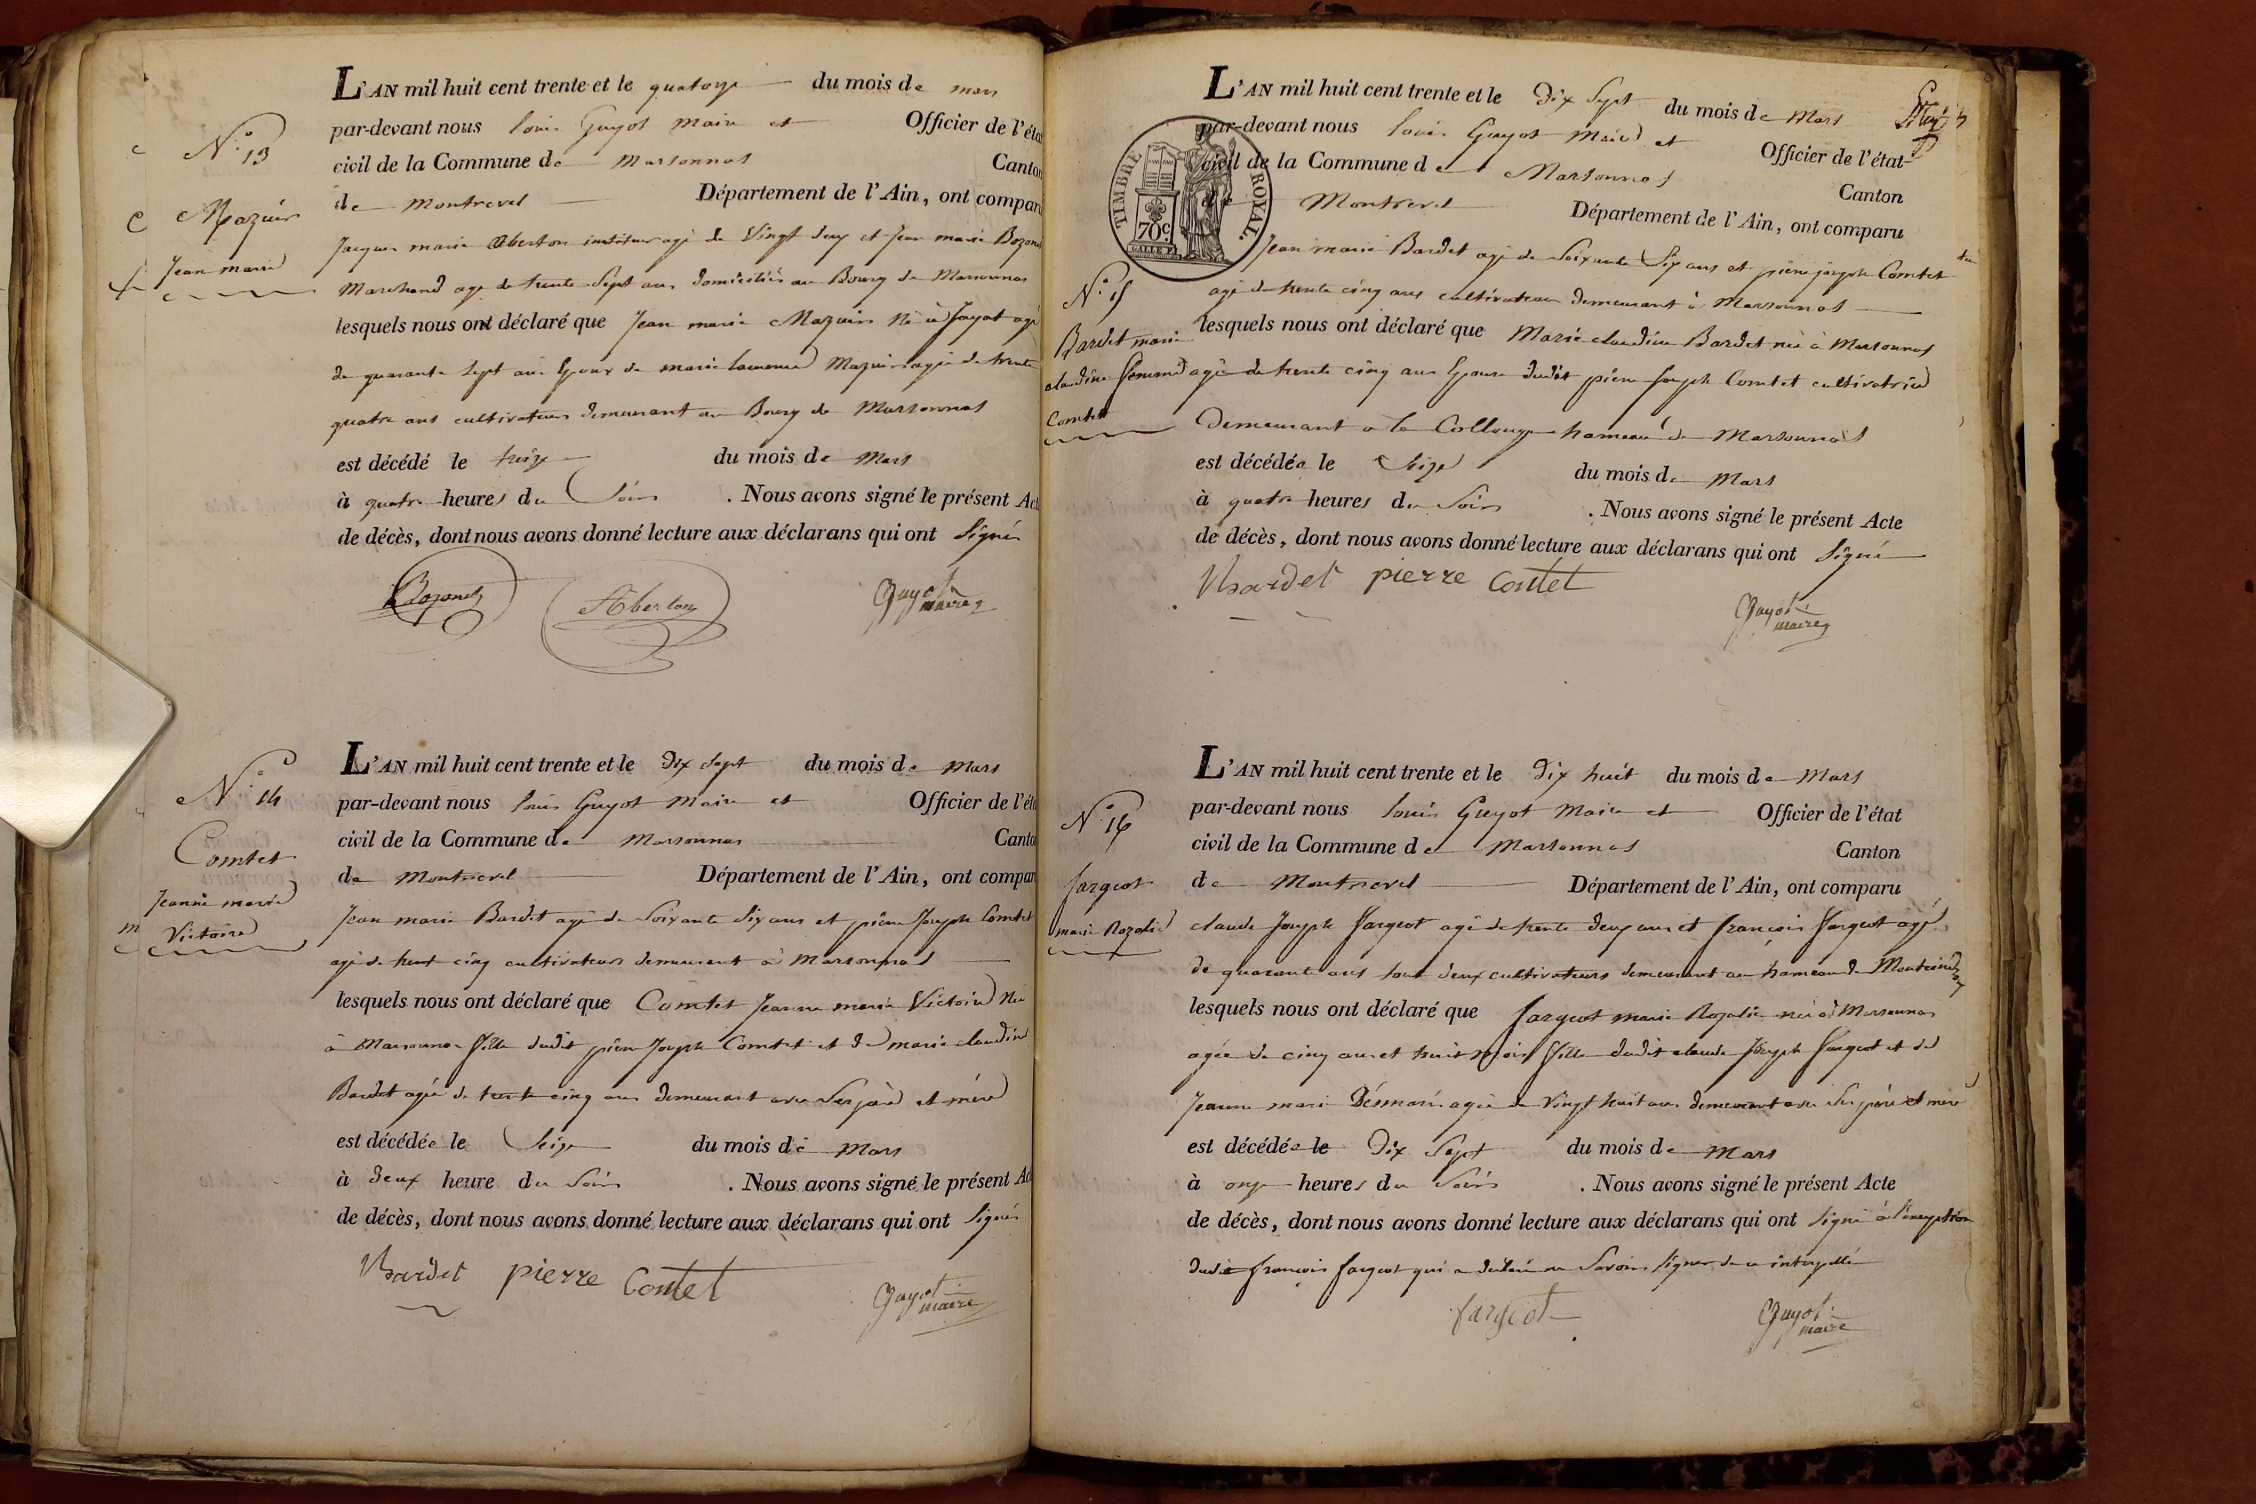 N.° 13
Mazuir
Jean marie
L'AN mil huit cent trente et le quatorze du mois de mars
par-devant nous louis Guyot maire et Officier de l'éta
civil de la Commune de marsonnas Canton
de montrevel Département de l'Ain, ont comparu
Jacques marie Aberton instituteur agé de vingt deux et jean marie Bozon
marchand agé de trente Sept ans domiciliés au Bourg de Marsonnas
lesquels nous ont déclaré que jean marie Mazuir Né à jayat agé
de quarante Sept ans Epoux de marie laurence Mazuir agée de trente
quatre ans cultivateurs demeurant au Bourg de Marsonnas
est décédé le treize du mois de Mars
à quatre heures du Soir . Nous avons signé le présent Act
de décès, dont nous avons donné lecture aux déclarans qui ont Signé
Bozonet Aberton Guyot
maire
N.° 14
Comtet
Jeanne marie
Victoire
L'AN mil huit cent trente et le dix sept du mois de mars
par-devant nous louis Guyot maire et Officier de l'éta
civil de la Commune de marsonnas Canto
de montrevel Département de l'Ain, ont compar
Jean marie Bardet agé de Soixante Six ans et pierre Joseph Comtet
agé de trent cinq cultivateurs demeurant à Marsonnas
lesquels nous ont déclaré que Comtet jeanne marie Victoire Née
à Marsonnas fille dudit pierre Joseph Comtet et de marie claudine
Bardet agée de trente cinq ans demeurant avec Ses père et mère
est décédée le Seize du mois de Mars
à deux heure du Soir . Nous avons signé le présent Ac
de décès, dont nous avons donné lecture aux déclarans qui ont Signé
Bardet pierre Contet Guyot
maire
TIMBRE ROYAL.
70c
N.° 15
Bardet marie
claudine femme
Comtet
L'AN mil huit cent trente et le Dix Sept du mois de Mars
par-devant nous louis Guyot Maire et Officier de l'état-
civil de la Commune de Marsonnas Canton
de Montrevel Département de l'Ain, ont comparu
Jean marie Bardet agé de Soixante Six ans et pierre joseph Comtet
agé de trente cinq ans cultivateurs demeurant à Marsonnas
lesquels nous ont déclaré que Marie claudine Bardet née à Marsonnas
agée de trente cinq ans Epouse dudit pierre Joseph Comtet cultivatrice
Demeurant à la Collonge hameau de Marsonnas
est décédée le Seize du mois de Mars
à quatre heures du Soir . Nous avons signé le présent Acte
de décès, dont nous avons donné lecture aux déclarans qui ont Signé
Bardet pierre Contet
Guyot
maire
N.° 16
fargeot
marie Rozalie
L'AN mil huit cent trente et le Dix huit du mois de Mars
par-devant nous louis Guyot Maire et Officier de l'état
civil de la Commune de Marsonnas Canton
de Montrevel Département de l'Ain, ont comparu
claude Joseph fargeot agé de trente deux ans et françois fargeot agé
de quarante ans tous deux cultivateurs demeurant au hameau de
lesquels nous ont déclaré que fargeot marie Rozalie née à Marsonnas
agée de cinq ans et huit mois fille dudit claude Joseph fargeot et de
Jeanne marie Désmaris agée de Vingt huit ans demeurant avec Ses père et mère
est décédée le Dix Sept du mois de Mars
à onze heures du Soir . Nous avons signé le présent Acte
de décès, dont nous avons donné lecture aux déclarans qui ont Signé à l'exception
dudit françois fargeot qui a déclaré ne Savoir Signer de ce interpellé
fargeot Guyot
maire